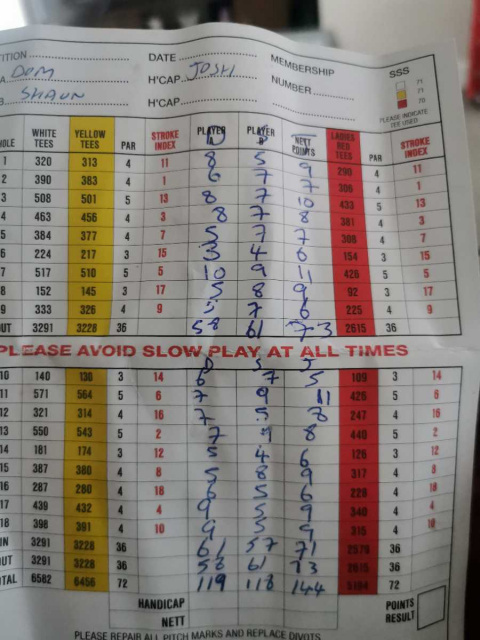 TITION DATE MEMBERSHIP
A DOM H'CAP JOSH NUMBER SSS
B SHAUN H'CAP 71 71 70
PLEASE INDICATE TEE USED
HOLE WHITE TEES YELLOW TEES PAR STROKE INDEX PLAYER D PLAYER S NETT POINTS J LADIES RED TEES PAR STROKE INDEX
1 320 313 4 11 8 5 9 290 4 11
2 390 383 4 1 6 7 7 306 4 1
3 508 501 5 13 8 7 10 433 5 13
4 463 456 4 3 8 7 8 381 4 3
5 384 377 4 7 5 7 7 308 4 7
6 224 217 3 15 3 4 6 154 3 15
7 517 510 5 5 10 9 11 426 5 5
8 152 145 3 17 5 8 9 92 3 17
9 333 326 4 9 5 7 6 225 4 9
OUT 3291 3228 36 58 61 73 2615 36
PLEASE AVOID SLOW PLAY AT ALL TIMES
D S J
10 140 130 3 14 6 7 5 109 3 14
11 571 564 5 6 7 9 11 426 5 6
12 321 314 4 16 7 5 8 247 4 16
13 550 543 5 2 7 9 8 440 5 2
14 181 174 3 12 5 4 6 126 3 12
15 387 380 4 8 5 8 9 317 4 8
16 287 280 4 18 6 5 6 228 4 18
17 439 432 4 4 9 5 9 340 4 4
18 398 391 4 10 9 5 9 315 4 10
IN 3291 3228 36 61 57 71 2579 36
OUT 3291 3228 36 58 61 73 2615 36
TOTAL 6582 6456 72 119 118 144 5194 72
HANDICAP POINTS
NETT RESULT
PLEASE REPAIR ALL PITCH MARKS AND REPLACE DIVOTS